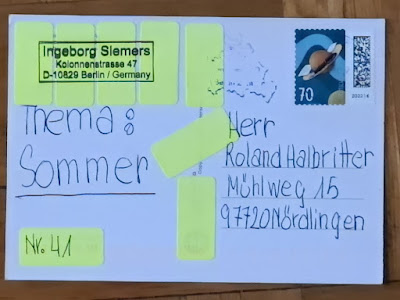 Ingeborg Siemers
Kolonnenstrasse 47
D-10829 Berlin / Germany
70
Thema:
Sommer
Nr. 41
Herr
Roland Halbritter
Mühlweg 15
97720 Nördlingen